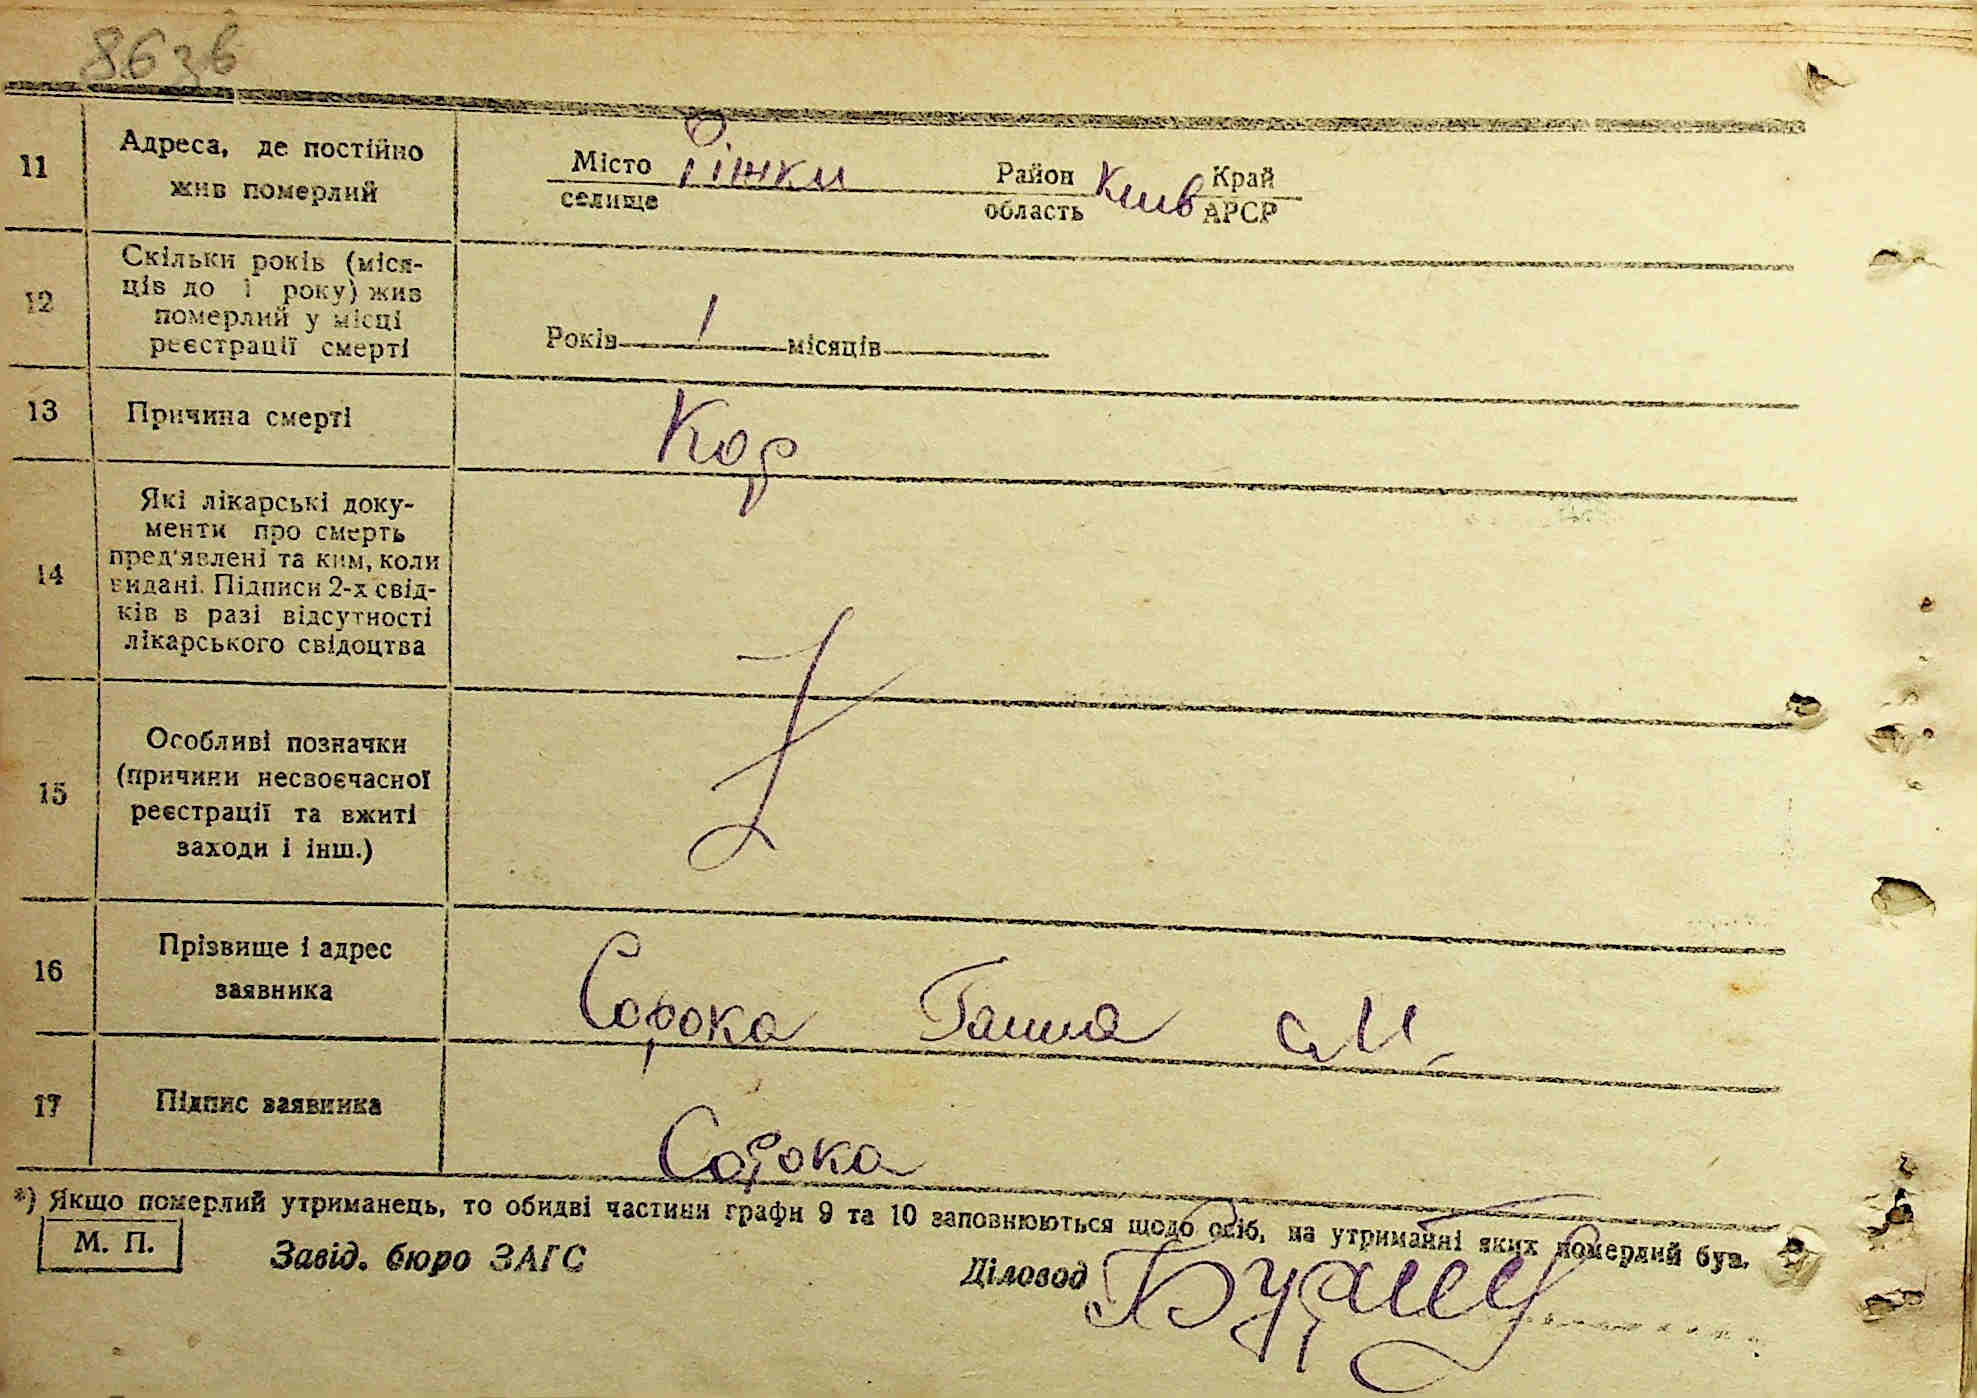 8636
11 Адреса, де постійно
жив померлий
Місто Ріжки Район Київ Край
селище область АРСР
12 Скільки років (міся-
ців до 1 року) жив
померлий у місці
реєстрації смерті
Років 1 місяців
13 Причина смерті Кор
14 Які лікарські доку-
менти про смерть
пред'явлені та ким, коли
видані. Підписи 2-х свід-
ків в разі відсутності
лікарського свідоцтва
15 Особливі позначки
(причини несвоєчасної
реєстрації та вжиті
заходи і інш.)
16 Прізвище і адрес
заявника
Сорока Ганна с.М.
17 Підпис заявника
Сорока
*) Якщо померлий утриманець, то обидві частини графи 9 та 10 заповнюються щодо осіб, на утриманні яких померлий був.
М. П.
Завід. бюро ЗАГС
Діловод